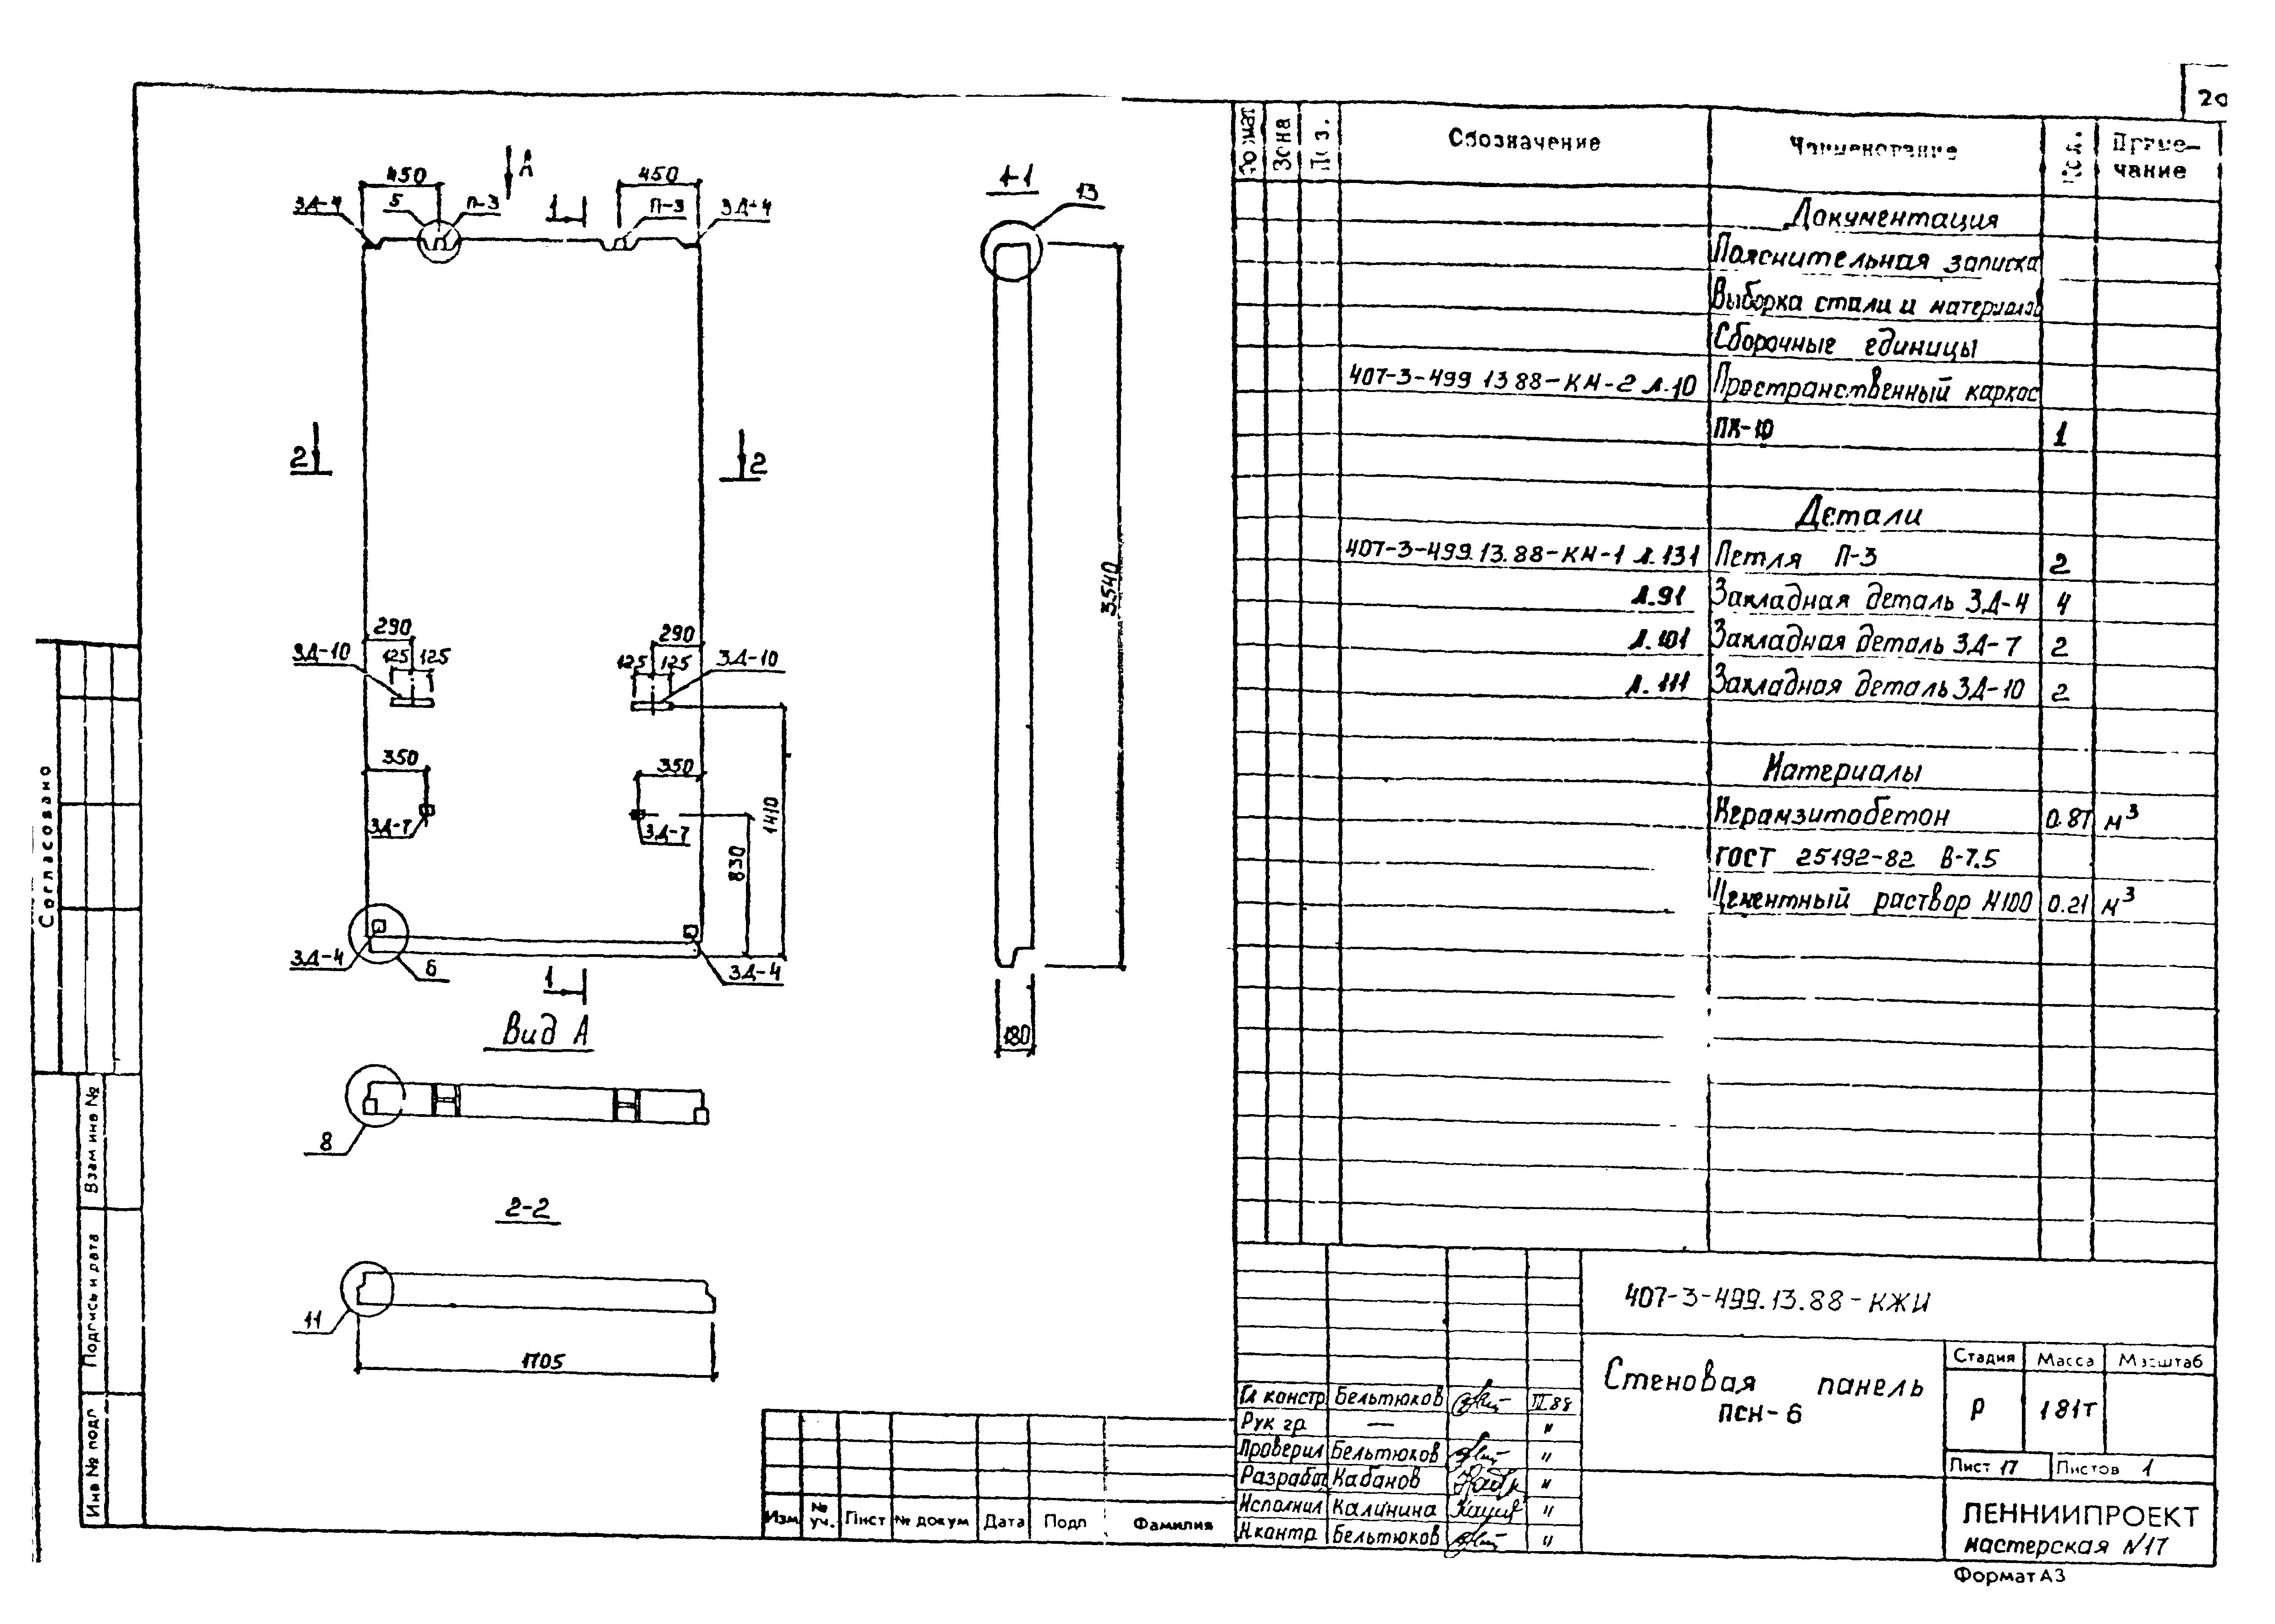 20
А
450
450
ЗД-4
5
П-3
1
П-3
ЗД-4
1-1
13
2
2
3540
290
290
ЗД-10
125
125
125
125
ЗД-10
350
350
ЗД-7
ЗД-7
830
1410
ЗД-4
6
1
ЗД-4
180
Вид А
8
2-2
11
1705
Формат
Зона
Поз.
Обозначение
Наименование
Кол.
Приме-
чание
Документация
Пояснительная записка
Выборка стали и материалов
Сборочные единицы
407-3-499 13 88-КН-2 л.10 Пространственный каркас
ПК-10 1
Детали
407-3-499.13.88-КН-1 л.131 Петля П-3 2
л.91 Закладная деталь ЗД-4 4
л.101 Закладная деталь ЗД-7 2
л.111 Закладная деталь ЗД-10 2
Материалы
Керамзитобетон 0.87 м³
ГОСТ 25192-82 В-7.5
Цементный раствор М100 0.21 м³
407-3-499.13.88-КЖИ
Стеновая панель
ПСН-6
Стадия Масса Масштаб
Р 1 81т
Лист 17 Листов 1
ЛЕННИИПРОЕКТ
мастерская №17
Формат А3
Гл констр Бельтюков III.88
Рук гр — "
Проверил Бельтюков "
Разработ Кабанов "
Исполнил Калинина "
Н.контр Бельтюков "
Изм № уч. Лист № докум Дата Подп Фамилия
Согласовано
Взам инв №
Подпись и дата
Инв № подл